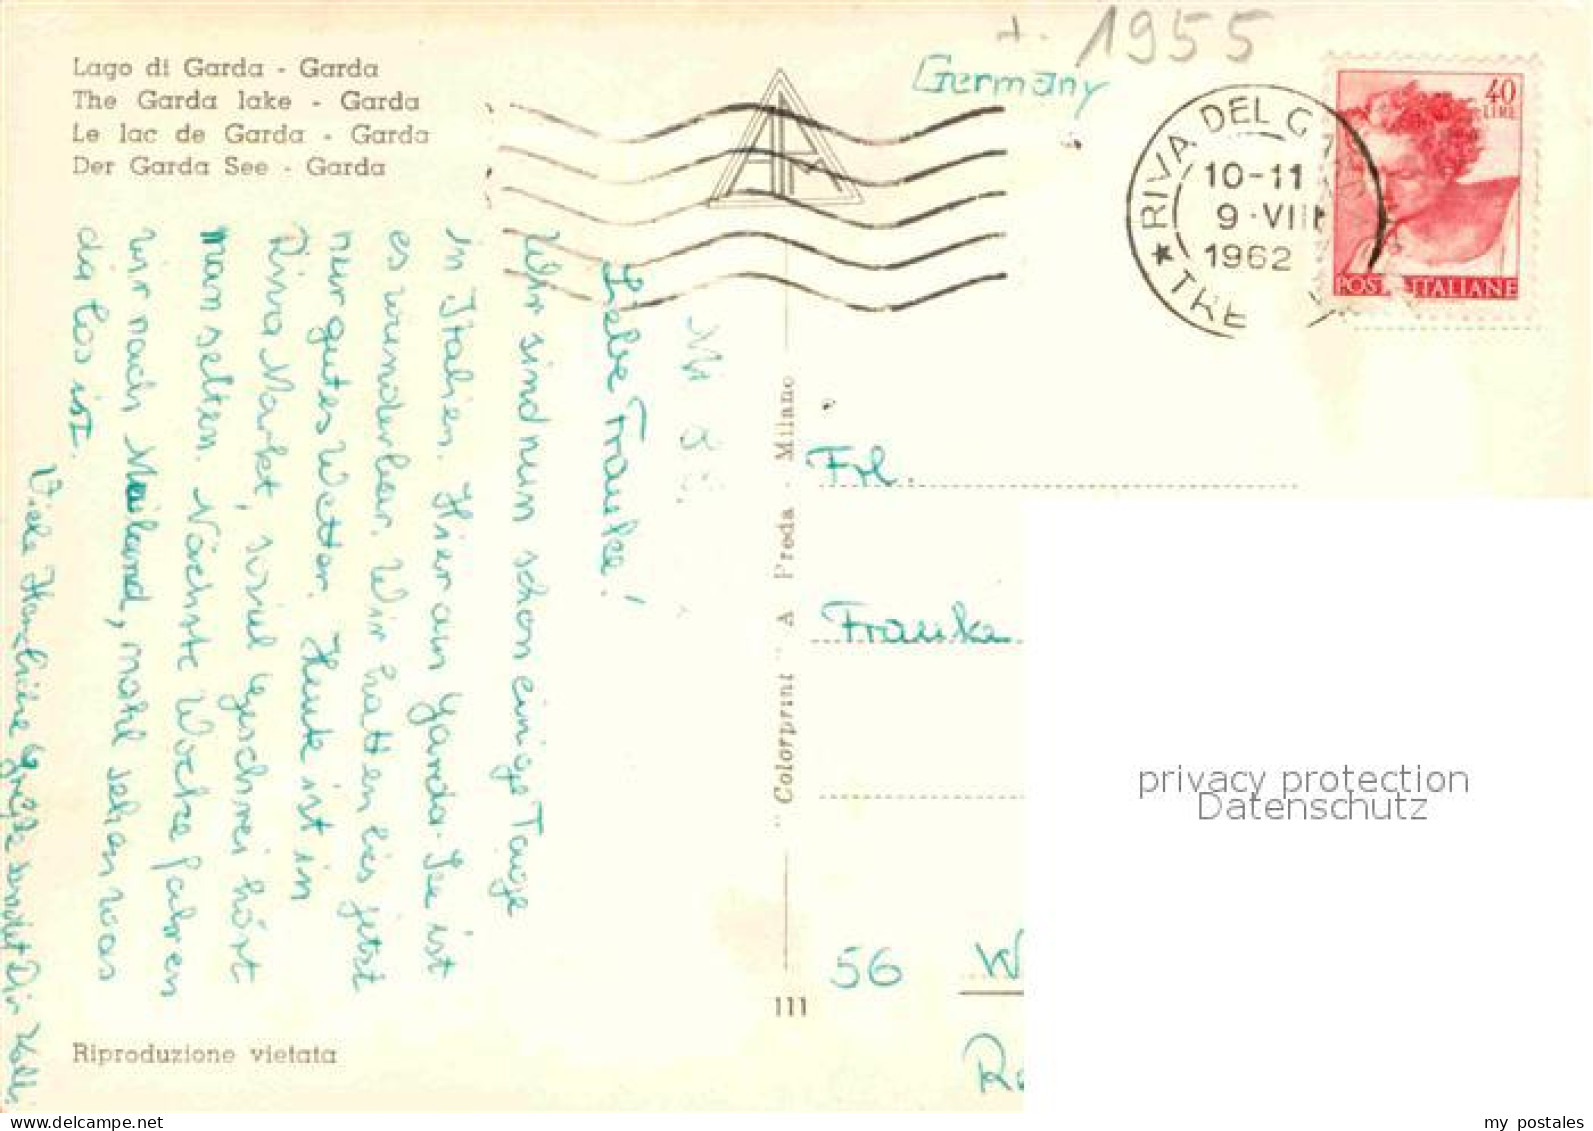 Lago di Garda - Garda
The Garda lake - Garda
Le lac de Garda - Garda
Der Garda See - Garda
1955
Germany
RIVA DEL G
10-11
9·VIII
1962
40
LIRE
POSTE ITALIANE
Liebe Frauke!
Wir sind nun schon einige Tage
in Italien. Hier am Garda-See ist
es wunderbar. Wir hatten bis jetzt
nur gutes Wetter. Heute ist in
Riva Markt, soviel Geschrei hört
man selten. Nächste Woche fahren
wir nach Mailand, mahl sehen was
da los ist.
Viele Herzliche Grüße sendet Dir
"Colorprint" A Preda - Milano
111
Riproduzione vietata
Frl.
Frauke
56 W
R
privacy protection
Datenschutz
www.delcampe.net
my postales